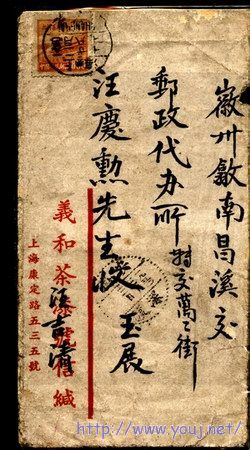 徽州歙南昌溪交
郵政代办所
转交萬二街
汪慶勲先生
玉展
義和茶
緘
上海康定路五三五號
http://www.youj.net/